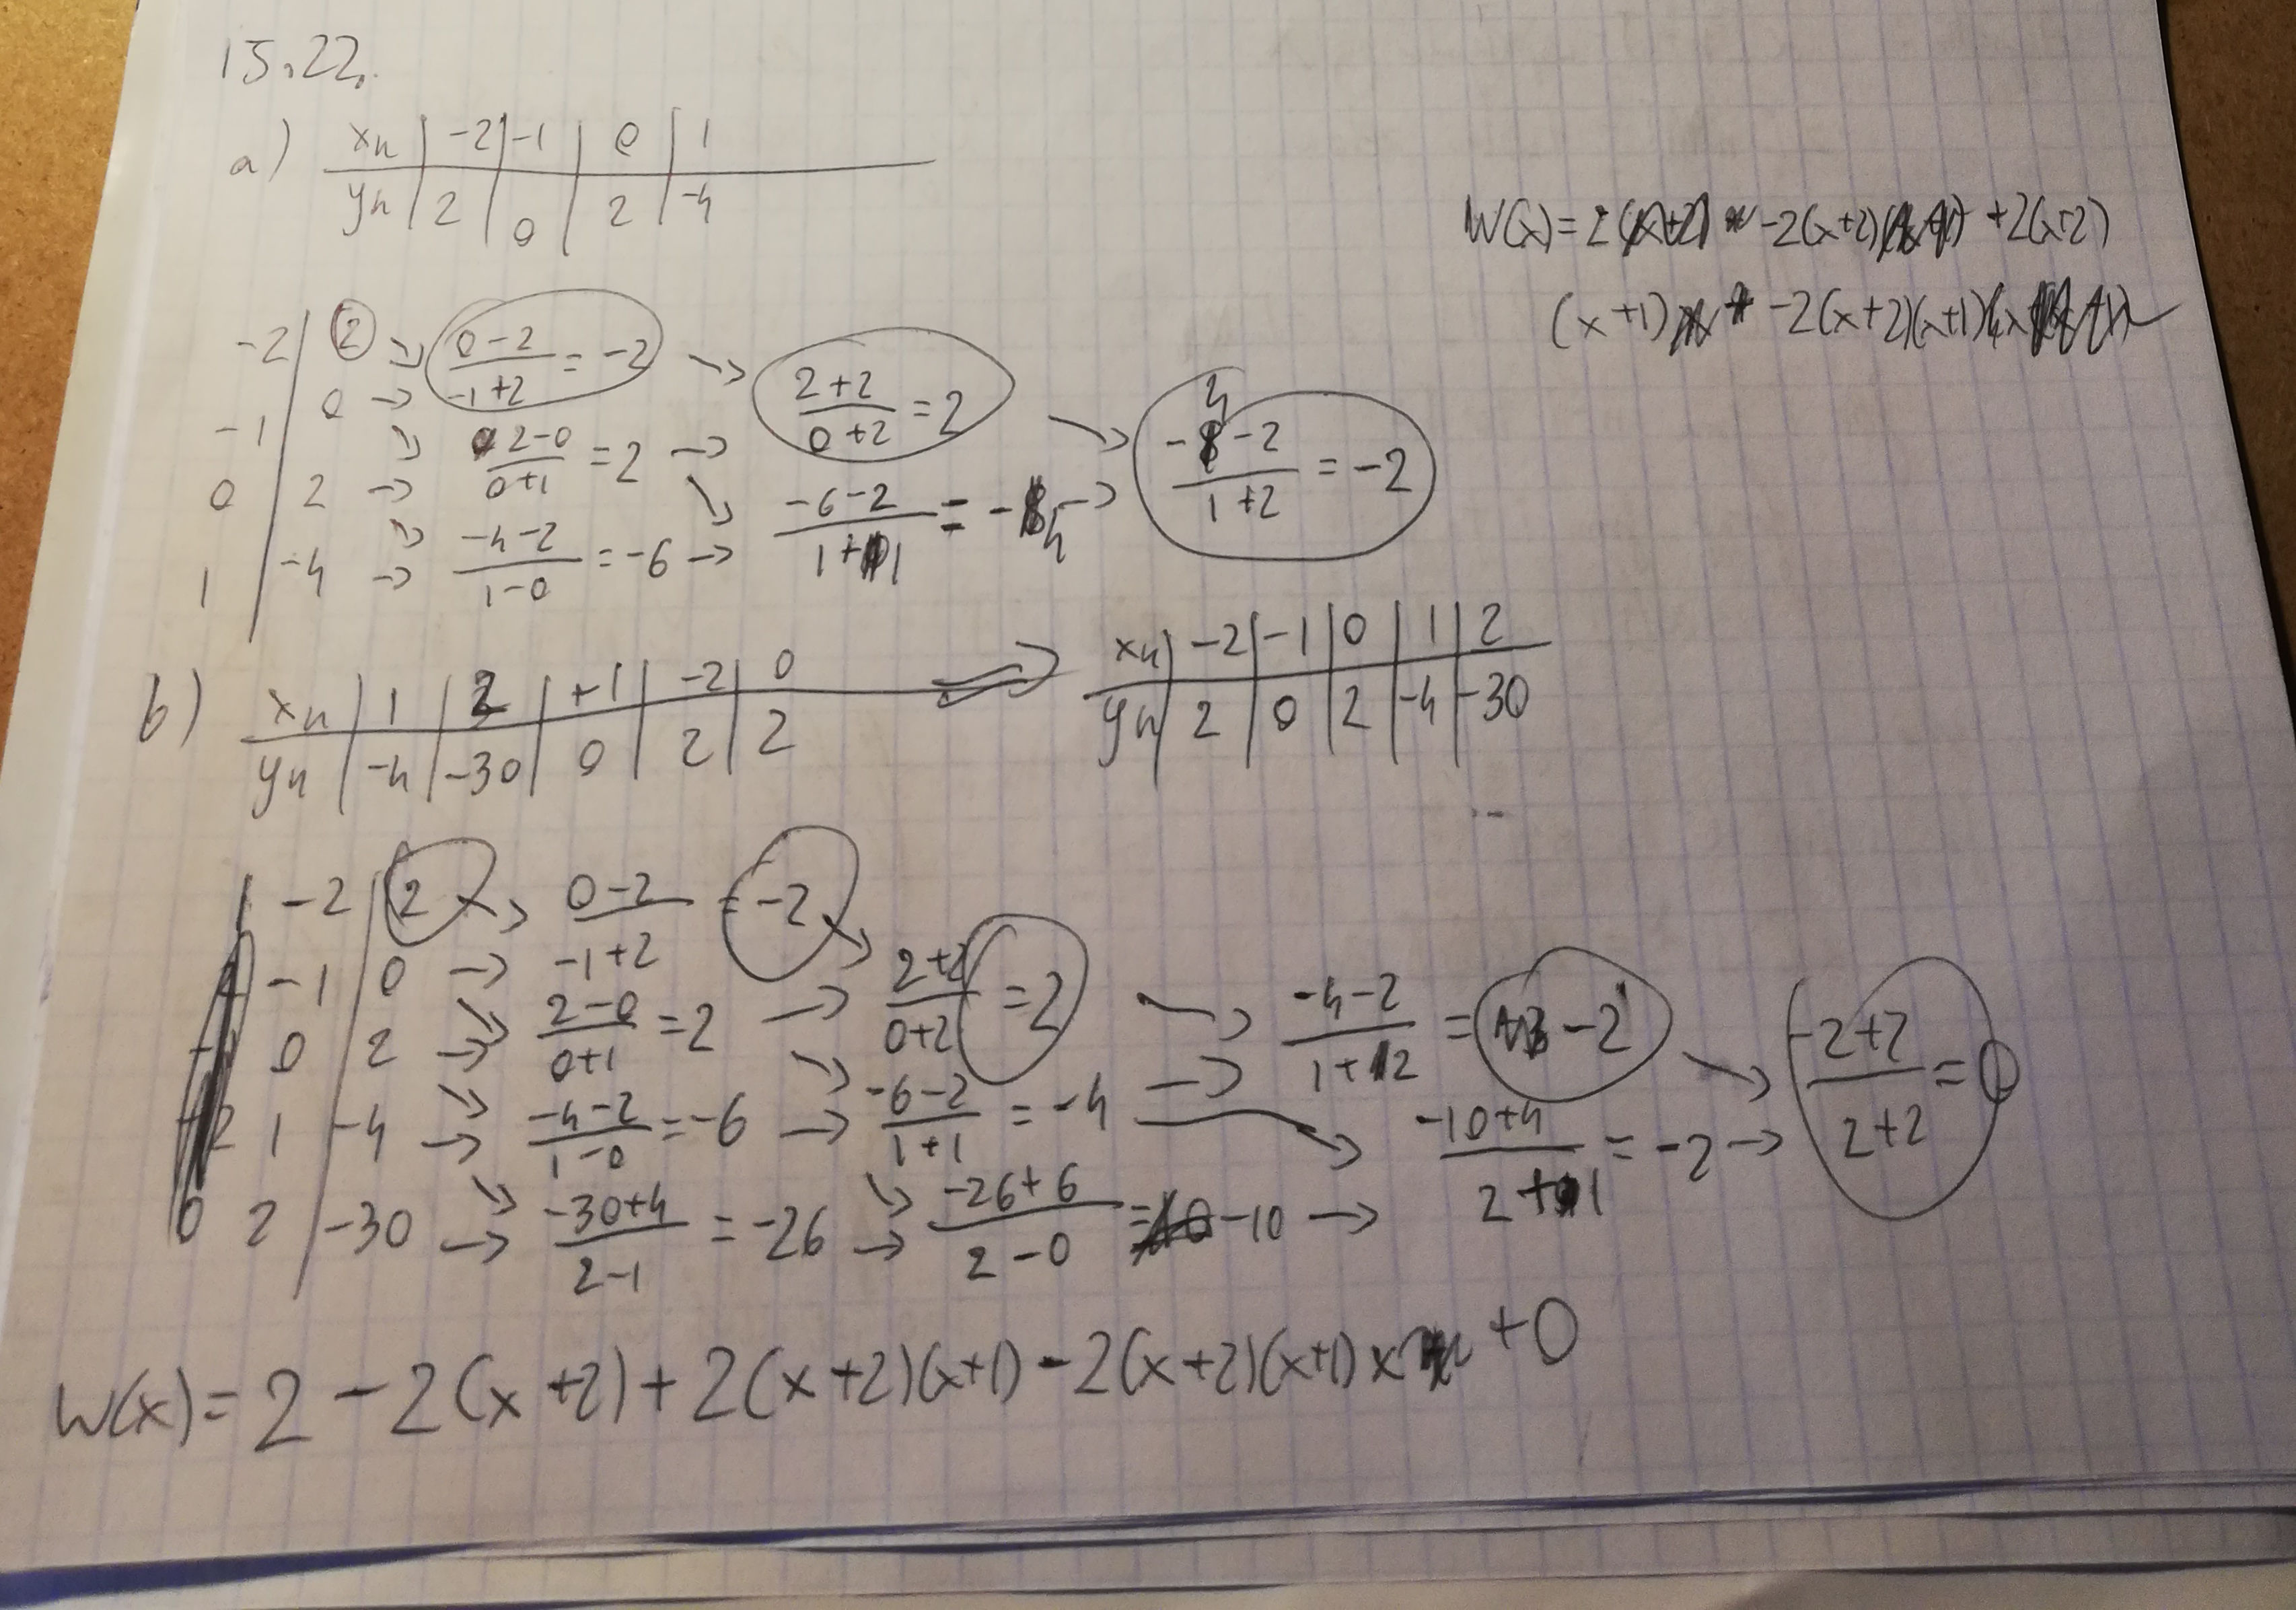 15.22.
a) xn | -2 | -1 | 0 | 1
yn | 2 | 0 | 2 | -4
W(x) = 2 -2(x+2) +2(x+2)
(x+1) -2(x+2)(x+1)x
-2 | 2 → (0-2)/(-1+2) = -2 → (2+2)/(0+2) = 2 → (-4-2)/(1+2) = -2
-1 | 0 → (2-0)/(0+1) = 2 → (-6-2)/(1+1) = -4 →
0 | 2 → (-4-2)/(1-0) = -6 →
1 | -4 →
b) xn | 1 | 2 | -1 | -2 | 0 ⇒ xn | -2 | -1 | 0 | 1 | 2
yn | -4 | -30 | 0 | 2 | 2 yn | 2 | 0 | 2 | -4 | -30
-2 | 2 → (0-2)/(-1+2) = -2 → (2+2)/(0+2) = 2 → (-4-2)/(1+2) = -2 → (-2+2)/(2+2) = 0
-1 | 0 → (2-0)/(0+1) = 2 → (-6-2)/(1+1) = -4 → (-10+4)/(2+1) = -2 →
0 | 2 → (-4-2)/(1-0) = -6 → (-26+6)/(2-0) = -10 →
1 | -4 → (-30+4)/(2-1) = -26 →
0 2 | -30 →
W(x) = 2 - 2(x+2) + 2(x+2)(x+1) - 2(x+2)(x+1)x +0